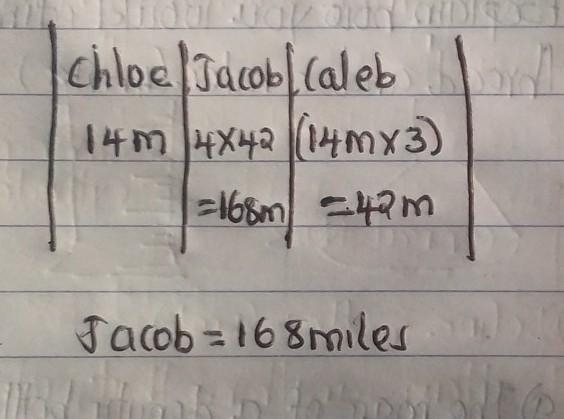 Chloe Jacob Caleb
14m 4x42 (14mx3)
=168m =42m
Jacob=168miles